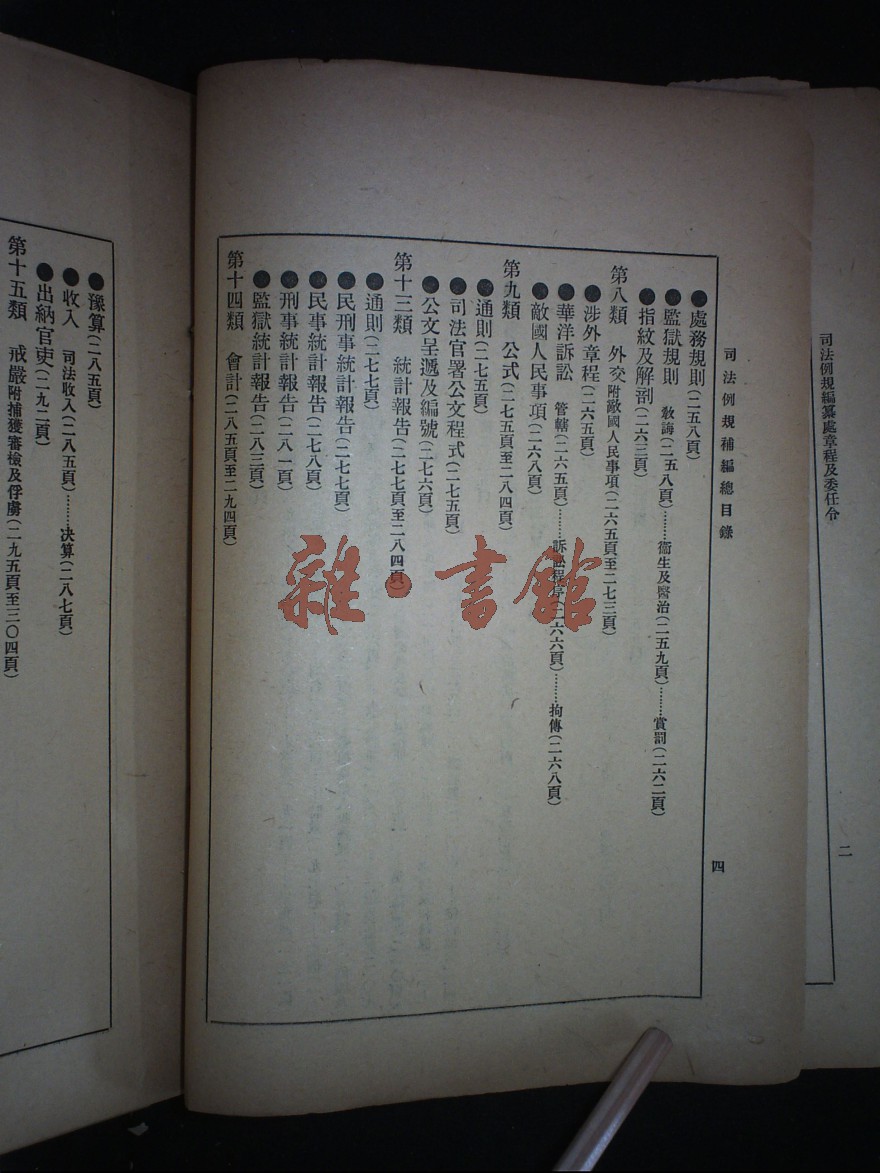 司法例規編纂處章程及委任令
二
司法例規補編總目錄
四
●處務規則(二五八頁)
●監獄規則 教誨(二五八頁)………衞生及醫治(二五九頁)………賞罰(二六二頁)
●指紋及解剖(二六三頁)
第八類 外交附敵國人民事項(二六五頁至二七三頁)
●涉外章程(二六五頁)
●華洋訴訟 管轄(二六五頁)………訴訟程序(二六六頁)………拘傳(二六八頁)
●敵國人民事項(二六八頁)
第九類 公式(二七五頁至二八四頁)
●通則(二七五頁)
●司法官署公文程式(二七五頁)
●公文呈遞及編號(二七六頁)
第十三類 統計報告(二七七頁至二八四頁)
●通則(二七七頁)
●民刑事統計報告(二七七頁)
●民事統計報告(二七八頁)
●刑事統計報告(二八一頁)
●監獄統計報告(二八三頁)
第十四類 會計(二八五頁至二九四頁)
●豫算(二八五頁)
●收入 司法收入(二八五頁)………決算(二八七頁)
●出納官吏(二九二頁)
第十五類 戒嚴附捕獲審檢及俘虜(二九五頁至三〇四頁)
雜·書館